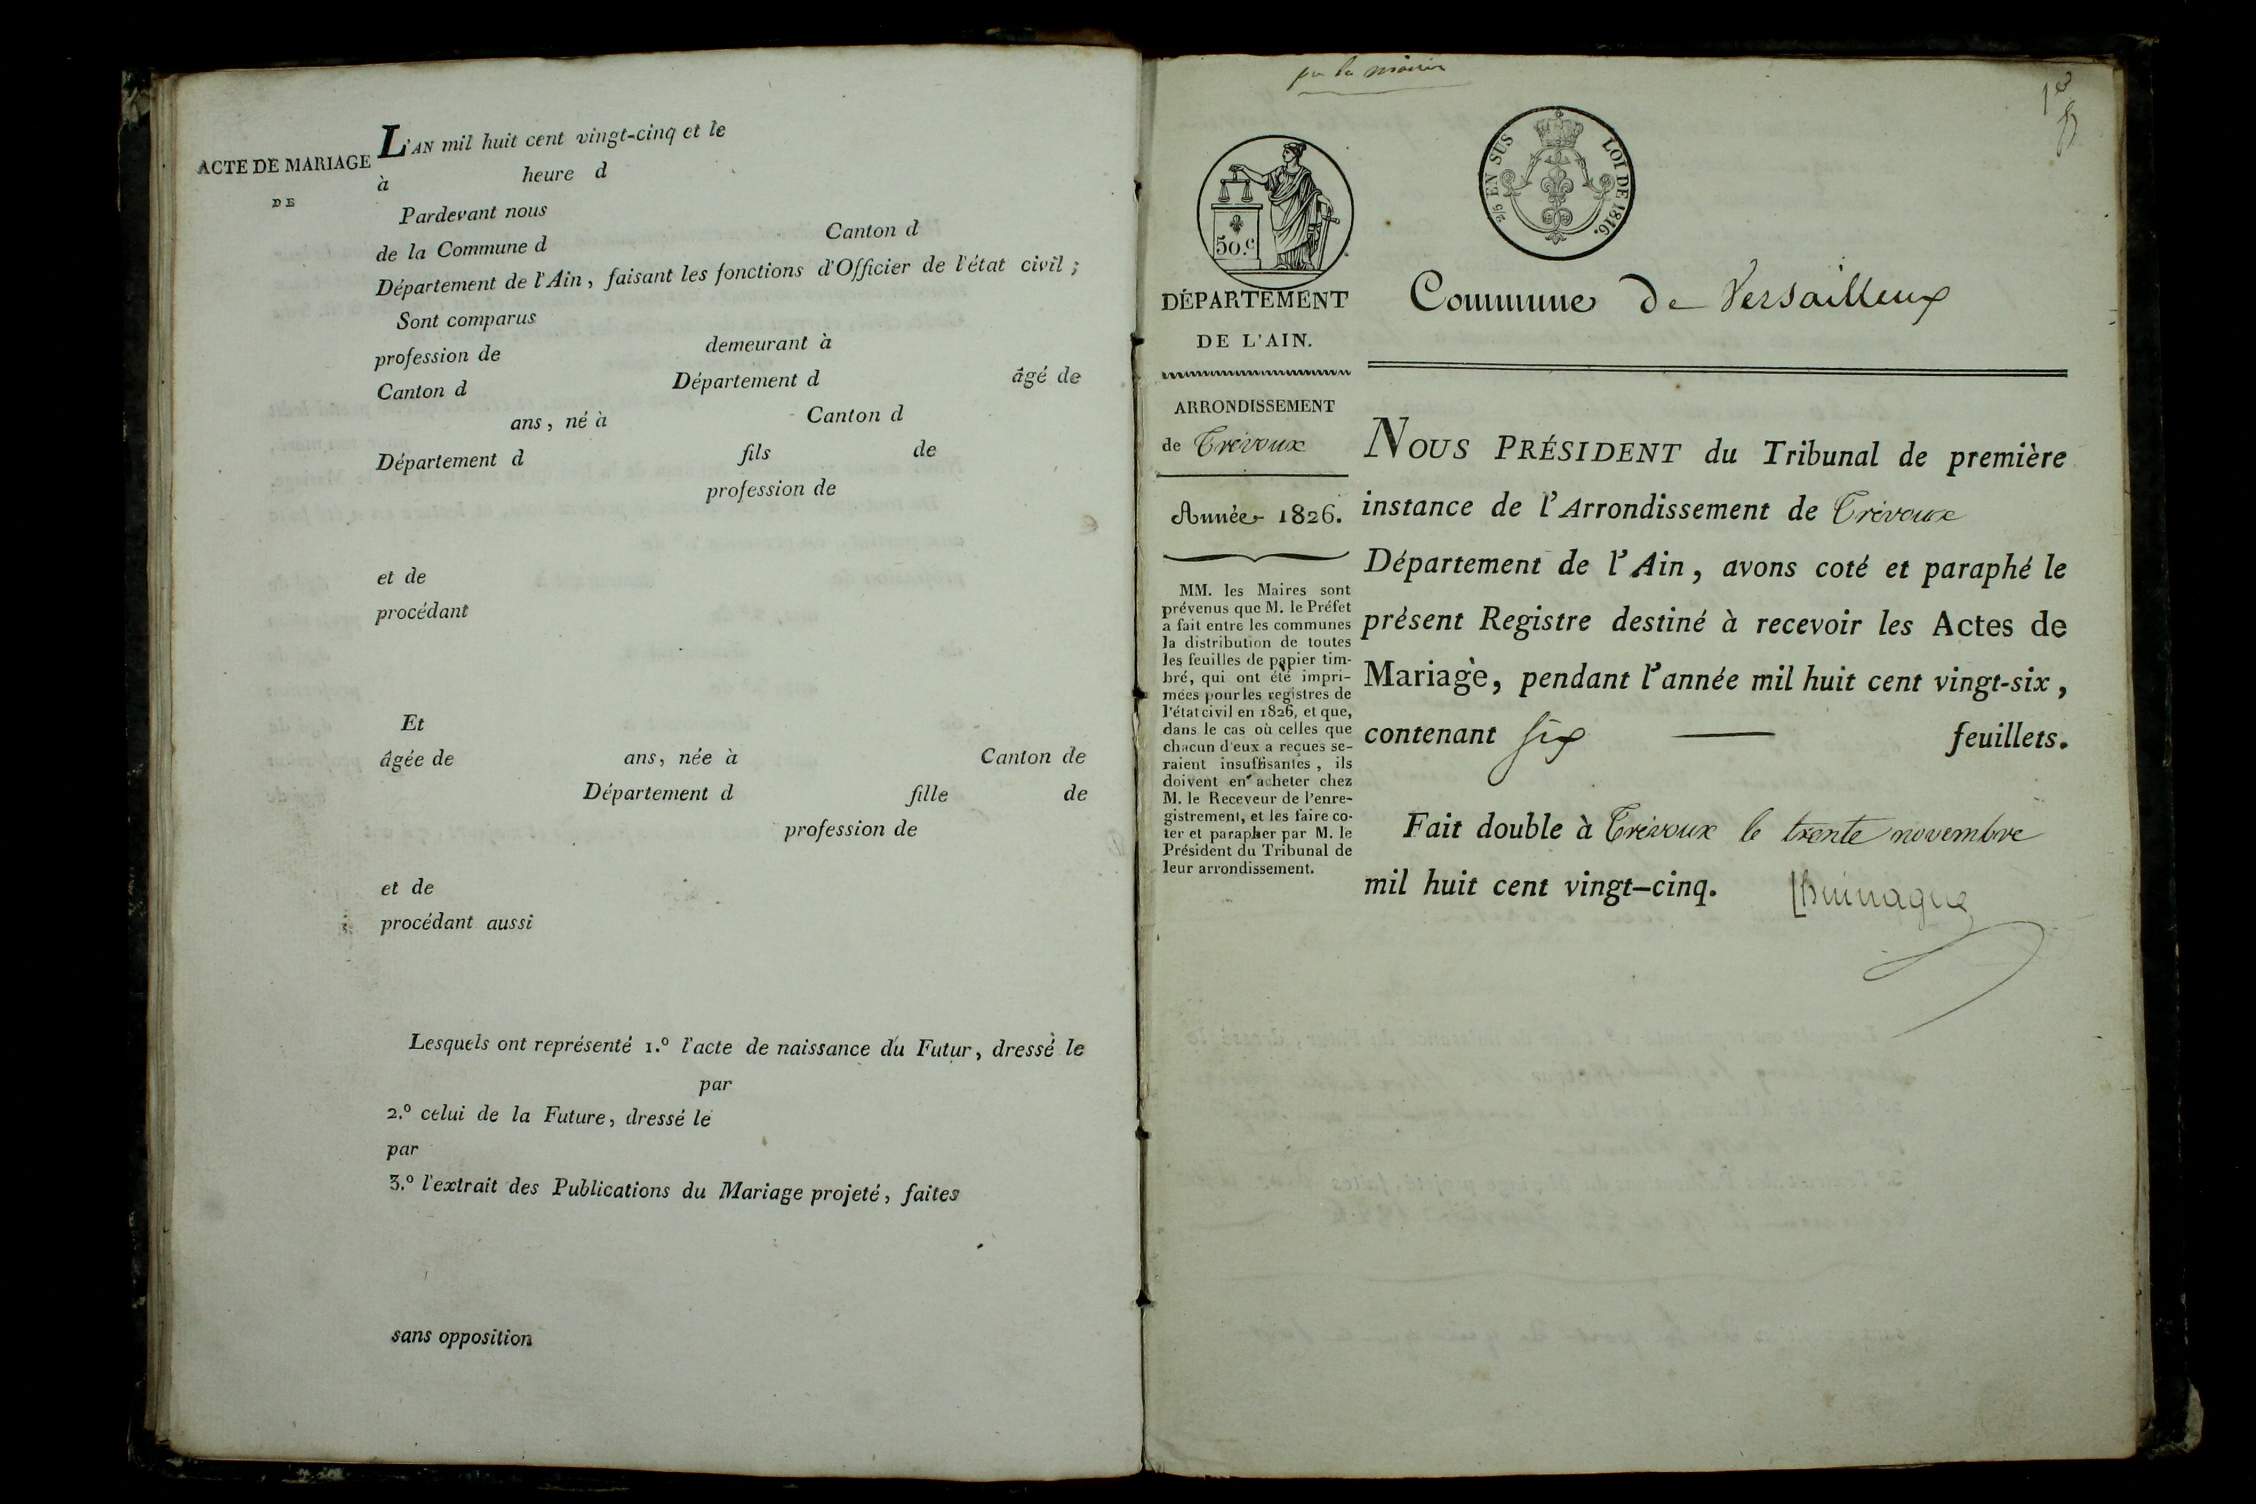 ACTE DE MARIAGE
DE
L'AN mil huit cent vingt-cinq et le
à heure d
Pardevant nous
de la Commune d Canton d
Département de l'Ain, faisant les fonctions d'Officier de l'état civil ;
Sont comparus
profession de demeurant à
Canton d Département d âgé de
ans, né à Canton d
Département d fils de
profession de
et de
procédant
Et
âgée de ans, née à Canton de
Département d fille de
profession de
et de
procédant aussi
Lesquels ont représenté 1.º l'acte de naissance du Futur, dressé le
par
2.º celui de la Future, dressé le
par
3.º l'extrait des Publications du Mariage projeté, faites
sans opposition
la mairie
1
50.c
2/5 EN SUS LOI DE 1816.
DÉPARTEMENT
DE L'AIN.
ARRONDISSEMENT
de Trévoux
Année 1826.
MM. les Maires sont
prévenus que M. le Préfet
a fait entre les communes
la distribution de toutes
les feuilles de papier tim-
bré, qui ont été impri-
mées pour les registres de
l'état civil en 1826, et que,
dans le cas où celles que
chacun d'eux a reçues se-
raient insuffisantes, ils
doivent en acheter chez
M. le Receveur de l'enre-
gistrement, et les faire co-
ter et parapher par M. le
Président du Tribunal de
leur arrondissement.
Commune de Versailleux
NOUS PRÉSIDENT du Tribunal de première
instance de l'Arrondissement de Trévoux
Département de l'Ain, avons coté et paraphé le
présent Registre destiné à recevoir les Actes de
Mariage, pendant l'année mil huit cent vingt-six,
contenant six feuillets.
Fait double à Trévoux le trente novembre
mil huit cent vingt-cinq.